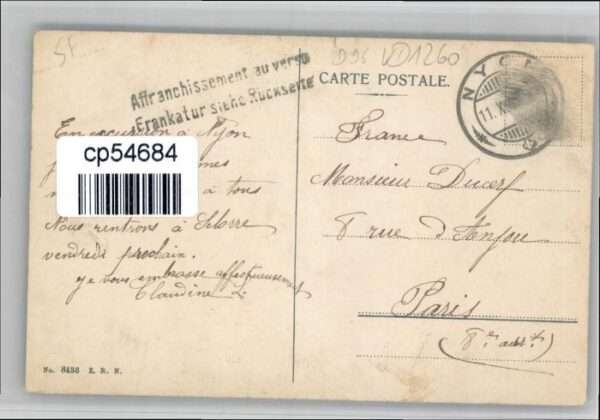 5F
995 VD1260
Affranchissement au verso
Frankatur siehe Rückseite
CARTE POSTALE.
NYON
11. X
En excursion à Nyon
cp54684
à tous
Nous rentrons à
vendredi prochain.
je vous embrasse affectueusement
Claudine
France
Monsieur Ducerf
8 rue d'Anjou
Paris
(8e arrt.)
No. 8436 E. R. N.